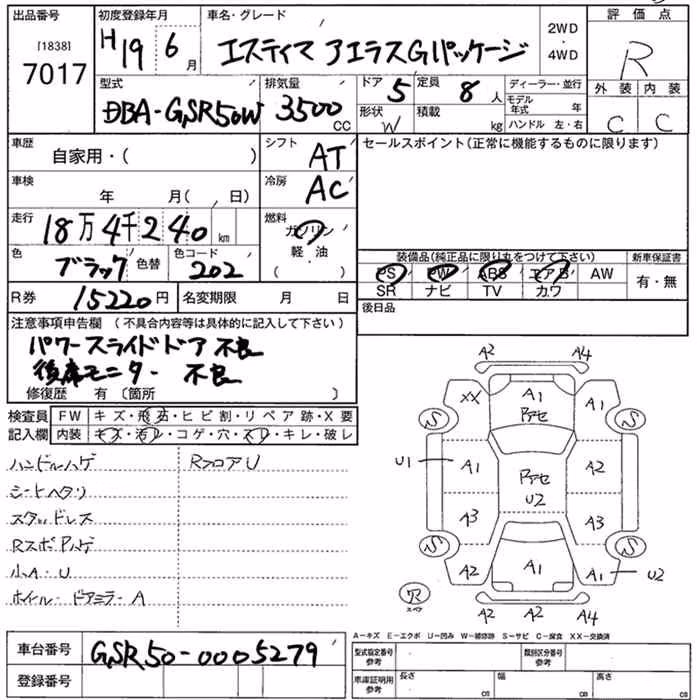 出品番号
[1838]
7017
初度登録年月
H19 6月
車名・グレード
エスティマ アエラスGパッケージ
2WD
・
4WD
評価点
R
外装 内装
C C
型式
DBA-GSR50W
排気量
3500 CC
ドア 5
形状 W
定員 8人
積載 kg
ディーラー・並行
モデル年式 年
ハンドル 左・右
車歴
自家用・( )
シフト
AT
車検
年 月( 、日)
冷房
AC
セールスポイント(正常に機能するものに限ります)
走行
18万4千240km
燃料
ガソリン
軽油
( )
色
ブラック 色替
色コード
202
装備品(純正品に限り丸をつけて下さい)
PS PW ABS エアB AW
SR ナビ TV カワ
新車保証書
有・無
R券 15220円
名変期限 月 日
後日品
注意事項申告欄 (不具合内容等は具体的に記入して下さい)
パワースライドドア 不良
後席モニター 不良
修復歴 有 〔箇所 〕
検査員
記入欄
FW キズ・飛石・ヒビ割・リペア跡・X要
内装 キズ・汚レ・コゲ・穴・スレ・キレ・破レ
ハンドルハゲ RフロアU
シートヘタリ
スタッドレス
Rスポアハゲ
小A・U
ホイール・ドアミラーA
A2 A4
XX A1 A1
アセ
S S
U1 A1 A2
アセ
U2
A3 A3
S S
A2 A1 A1 U2
穴
スペア
A2 A2 A4
A-キズ E-エクボ U-凹み W-補修跡 S-サビ C-腐食 XX-交換済
車台番号 GSR50-0005279
登録番号
型式指定番号
参考
類別区分番号
参考
車庫証明用
参考
長さ cm
幅 cm
高さ cm